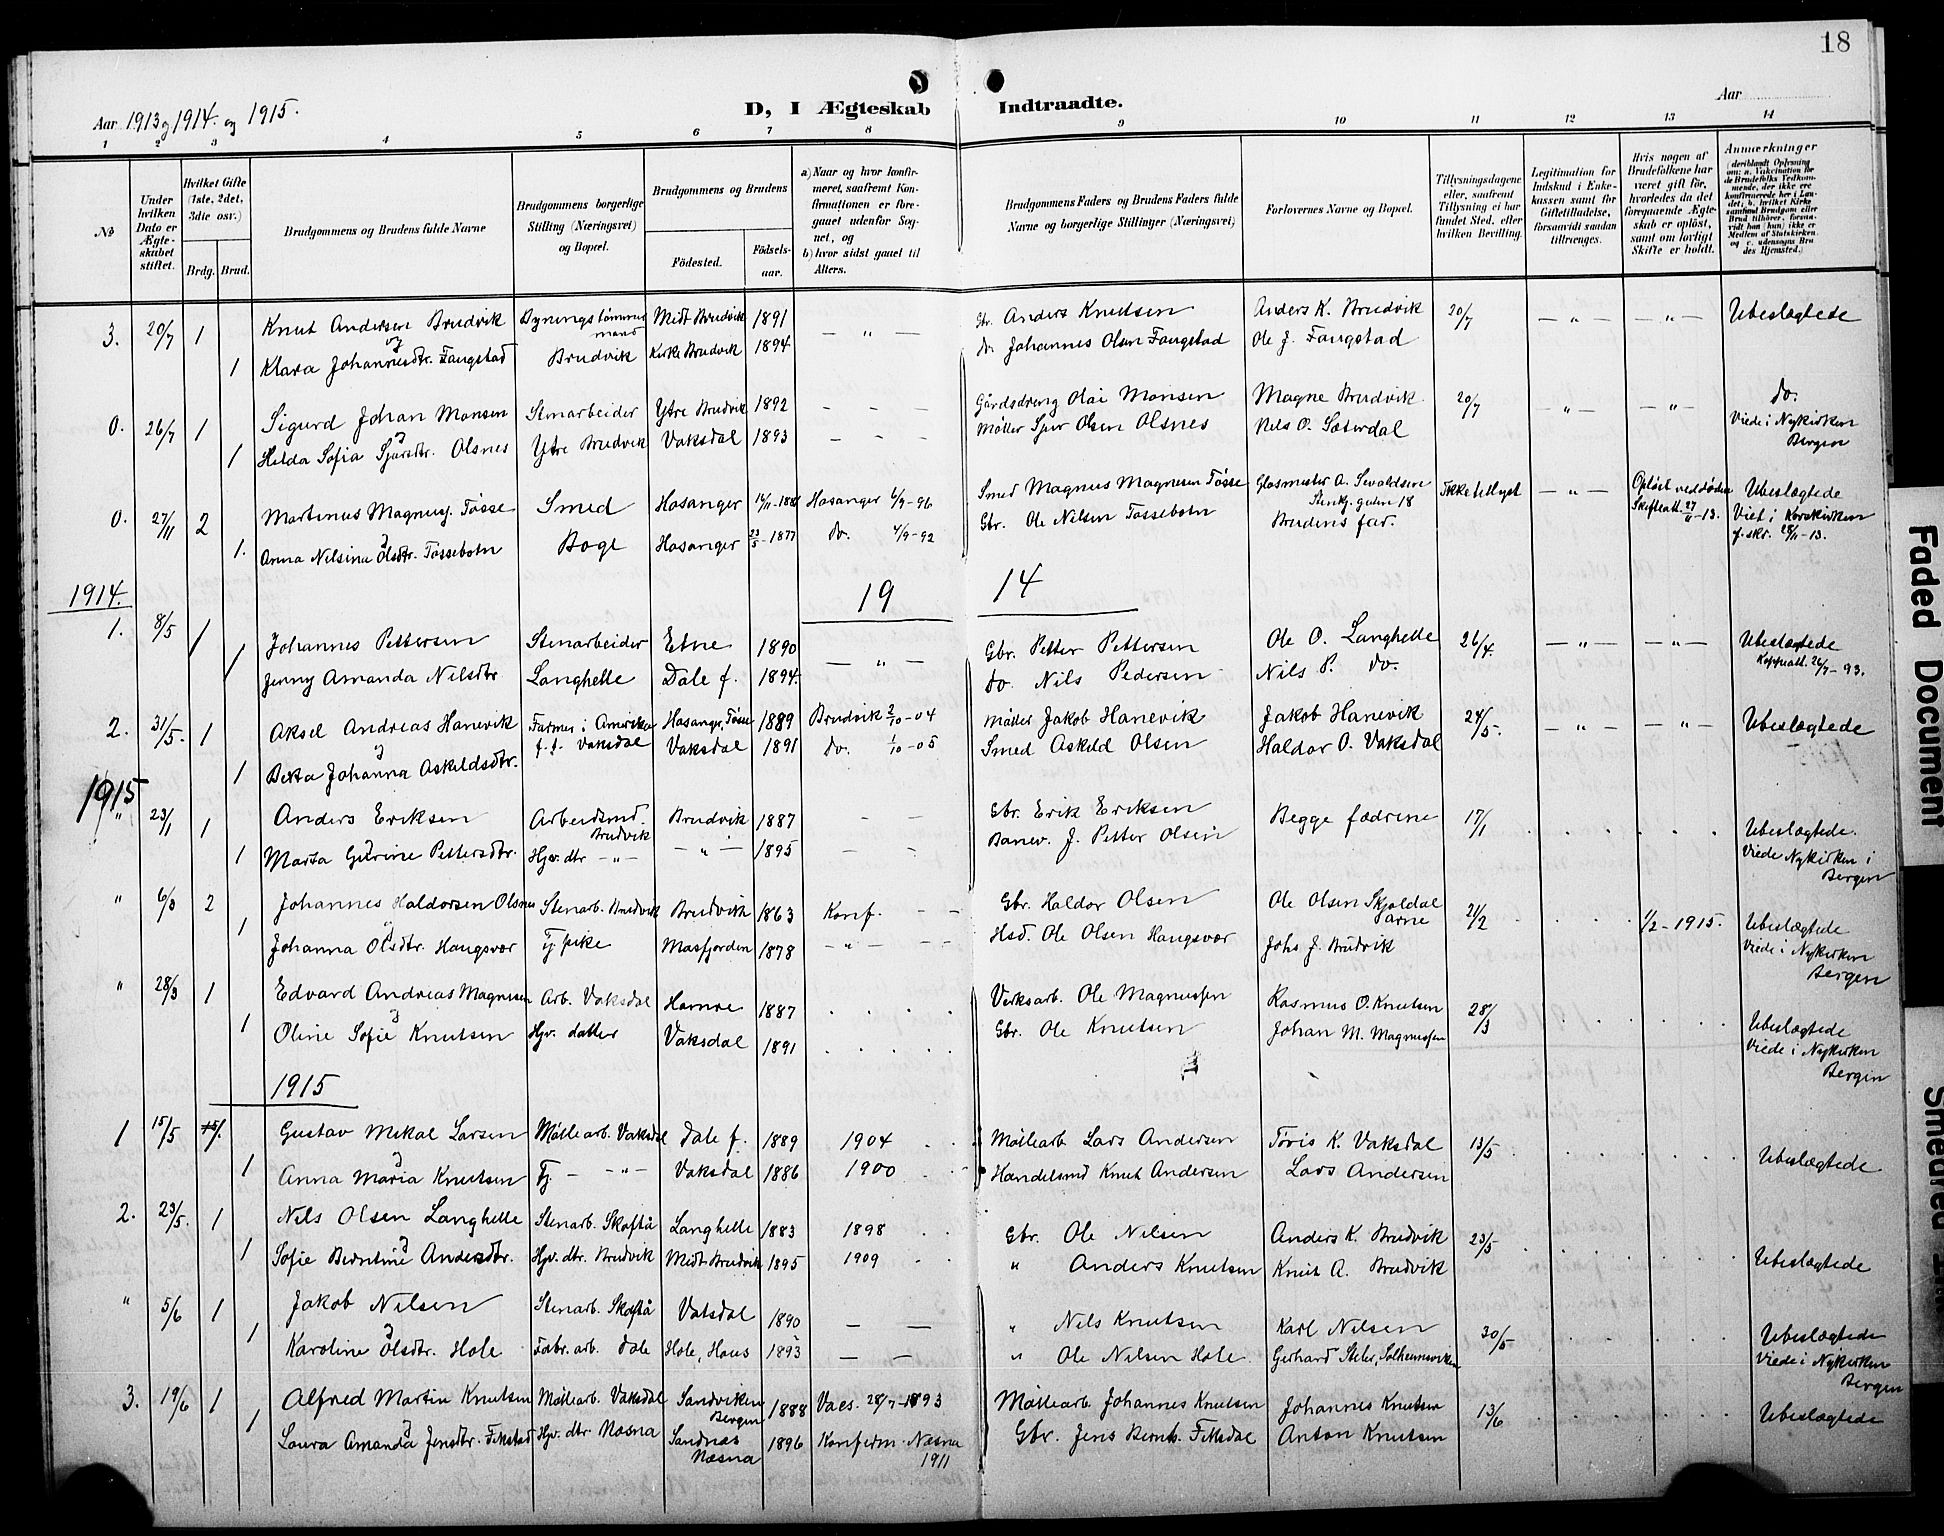 18
Aar 1913 og 1914. og 1915.
D, I Ægteskab Indtraadte.
Aar
1 2 3 4 5 6 7 8 9 10 11 12 13 14
No
Under hvilken Dato er Ægteskabet stiftet.
Hvilket Gifte (1ste, 2det, 3die osv.)
Brdg. Brud.
Brudgommens og Brudens fulde Navne
Brudgommens borgerlige Stilling (Næringsvei) og Bopæl.
Brudgommens og Brudens
Fødested. Fødselsaar.
a) Naar og hvor konfirmeret, saafremt Konfirmationen er foregaaet udenfor Sognet, og
b) hvor sidst gaaet til Alters.
Brudgommens Faders og Brudens Faders fulde Navne og borgerlige Stillinger (Næringsvei)
Forlovernes Navne og Bopæl.
Tillysningsdagene eller, saafremt Tillysning ei har fundet Sted, efter hvilken Bevilling.
Legitimation for Indskud i Enkekassen samt for Giftetilladelse, forsaavidt saadan tiltrænges.
Hvis nogen af Brudefolkene har været gift før, hvorledes da det foregaaende Ægteskab er opløst, samt om lovligt Skifte er holdt.
Anmærkninger
3. 20/7 1 Knut Andersen Brudvik Bygningstømmermand Midt Brudvik 1891 — " — Gbr. Anders Knutsen Anders K. Brudvik 20/7 — " — — " — Ubeslægtede
og
1 Klara Johannesdtr. Fangstad Brudvik Kirke Brudvik 1894 do Johannes Olsen Fangstad Ole J. Fangstad
0. 26/7 1 Sigurd Johan Monsen Stenarbeider Ytre Brudvik 1892 — — — Gårdsdreng Olai Monsen Magne Brudvik 20/7 — " — — " — do.
1 Hilda Sofia Sjursdtr. Olsnes Ytre Brudvik Vaksdal 1893 — " — Møller Sjur Olsen Olsnes Nils O. Sæterdal Viede i Nykirken Bergen
0. 27/11 2 Martinus Magnusj. Tøsse Smed Hosanger 1881 Hosanger 6/9-96 Smed Magnus Magnusen Tøsse Glasmester A. Sivaldsen 18 Ikke tillyst — " — Opløst ved døden Skifteatt. 27/11-13. Ubeslægtede
1. Anna Nilsina Olsdtr. Tøssebotn Boge Hosanger 23/5-1877 do. 4/9-92 Gbr. Ole Nilsen Tøssebotn Brudens far. Viet i Korskirken f. skr. 28/11-13.
1914. 19 14
1. 8/5 1 Johannes Pettersen Stenarbeider Etne 1890 — " — Gbr. Petter Pettersen Ole O. Langhelle 26/4. — " — — " — Ubeslægtede
1 Jenny Amanda Nilsdtr Langhelle Dale f. 1894. do Nils Pedersen Nils P. do. Koppeatt. 26/7-93.
2. 31/5. 1 Aksel Andreas Hanevik Farmer i Amerika Hosanger, Tøsse 1889 Brudvik 2/10-04 Møller Jakob Hanevik Jakob Hanevik 24/5- — " — — " — Ubeslægtede
1 Berta Johanna Askildsdtr. f. t. Vaksdal Vaksdal 1891 do. 1/10-05 Smed Askild Olsen Haldor O. Vaksdal
1915
" 23/1 1 Anders Eriksen Arbeidsmd. Brudvik Brudvik 1887 — — Gbr. Erik Eriksen Begge fædrene 17/1 Ubeslægtede.
1 Marta Gurine Pettersdtr. Hjv. dtr — " — — " — 1895 — — Banev. J. Petter Olsen Viede Nykirken i Bergen
" 6/3 2 Johannes Haldorsen Olsnes Stenarb. Brudvik Brudvik 1863 Konf. — — Gbr. Haldor Olsen Ole Olsen Skjoldal Arne 21/2 1/2-1915. Ubeslægtede
1 Johanna Olsdtr. Haugsvær Tj. pike Masfjorden 1878 — " — — Hsd. Ole Olsen Haugsvær Johs J. Brudvik Viede i Nykirken Bergen
" 28/3 1 Edvard Andreas Magnusen Arb. Vaksdal Hamre 1887 Verksarb. Ole Magnussen Rasmus O. Knutsen 28/3 Ubeslægtede
1 Oline Sofie Knutsen Hjv. datter Vaksdal 1891 Gbr. Ole Knutsen Johan M. Magnussen Viede i Nykirken Bergen
1915
1 15/5 1. Gustav Mikal Larsen Møllearb. Vaksdal Dale f. 1889 1904 Møllearb Lars Andersen Toris K. Vaksdal 13/5 Ubeslægtede
1 Anna Maria Knutsen Tj — " — Vaksdal 1886 1900 Handelsmd Knut Andersen Lars Andersen
2. 23/5. 1 Nils Olsen Langhelle Stenarb. Skaftå Langhelle 1883 1898 Gbr. Ole Nilsen Anders K. Brudvik 23/5 Ubeslægtede
1 Sofie Berntine Andersdtr. Hjv. dtr. Brudvik Midt-Brudvik 1895 1909 " Anders Knutsen Knut A. Brudvik
" 5/6 1 Jakob Nilsen Stenarb. Skaftå Vatsdal 1890 — — " Nils Knutsen Karl Nilsen 30/5 Ubeslægtede
1 Karoline Olsdtr. Hole Fabr. arb. Dale Hole, Haus 1893 — — " Ole Nilsen Hole. Gerhard Stiler, Solheimsviken Viede i Nykirken Bergen
3. 19/6 1 Alfred Martin Knutsen Møllearb. Vaksdal Sandviken Bergen 1888 Vacs. 28/7-1893 Møllearb Johannes Knutsen Johannes Knutsen 13/6 Ubeslægtede
1 Laura Amanda Jensdtr. Fikstad Hjv. dtr. Næsna Sandnæs Næsna 1896 Konferm. Næsna 1911 Gbr. Jens Bernh. Fiksdal Anton Knutsen
Faded Document
Smeared